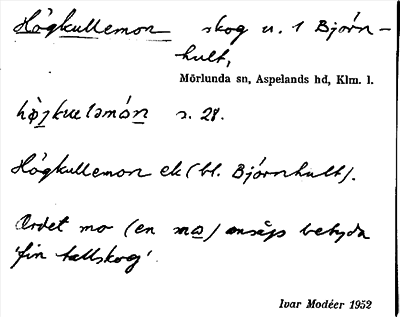 Högkullemon skog u. 1 Björn-
hult,
Mörlunda sn, Aspelands hd, Klm. l.
s. 28.
Högkullemon ek (bl. Björnhult).
Ordet mo (en mo) anságs betyda
'fin tallskog'.
Ivar Modéer 1952